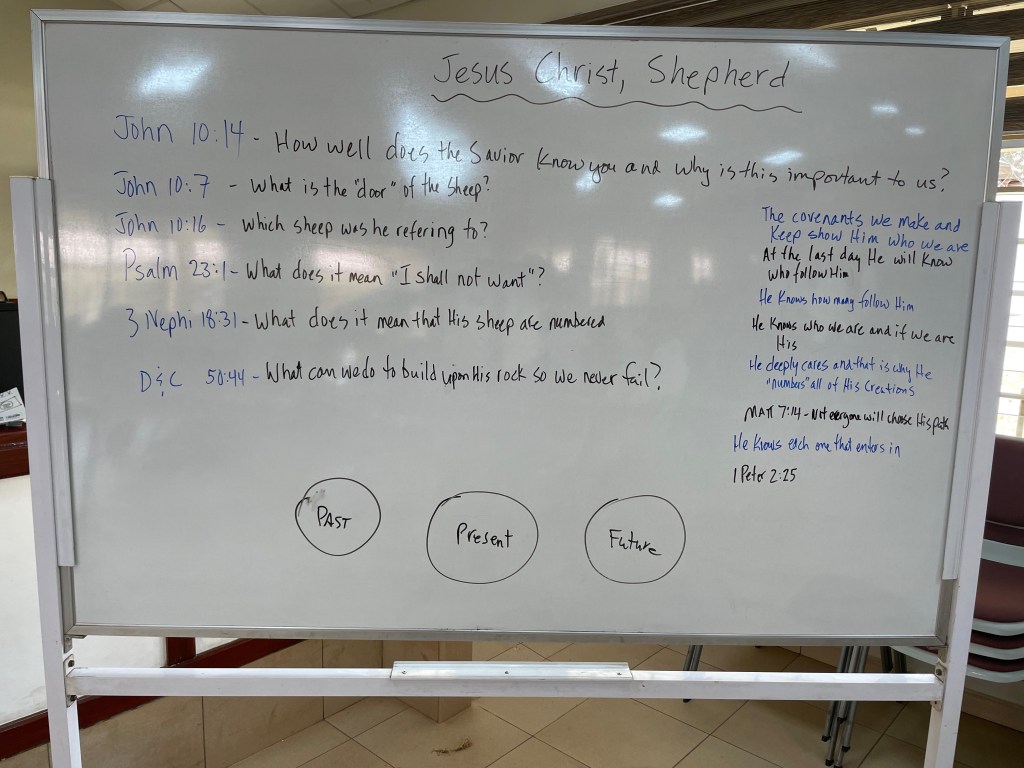 Jesus Christ, Shepherd
John 10:14 - How well does the Savior know you and why is this important to us?
John 10:7 - What is the "door" of the sheep?
John 10:16 - which sheep was he refering to?
Psalm 23:1 - What does it mean "I shall not want"?
3 Nephi 18:31 - What does it mean that His sheep are numbered
D&C 50:44 - What can we do to build upon His rock so we never fail?
The covenants we make and
keep show Him who we are
At the last day He will know
who follow Him
He knows how many follow Him
He knows who we are and if we are
His
He deeply cares and that is why He
"numbers" all of His creations
MATT 7:14 - Not everyone will choose His path
He knows each one that enters in
1 Peter 2:25
PAST
Present
Future